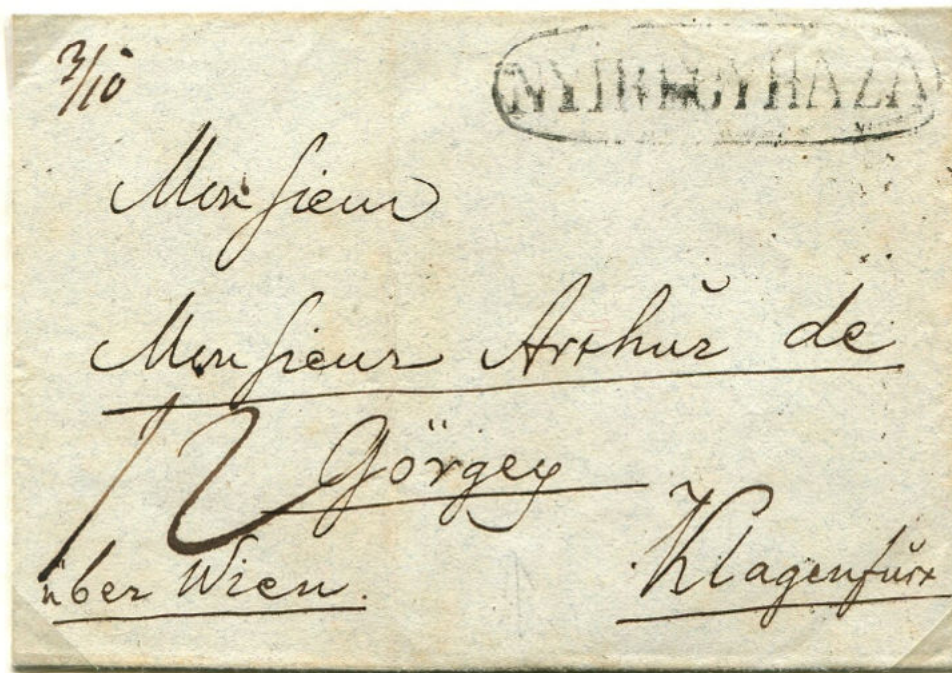 3/10
NYIREGYHAZA
Monsieur
Monsieur Arthur de
Görgey
12
über Wien.
Klagenfurt